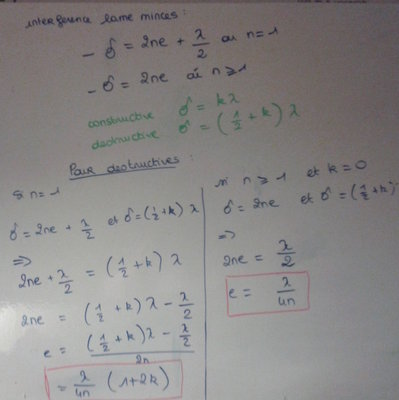 interférence lame minces :
- δ = 2ne + λ/2 où n=1
- δ = 2ne où n ⩾ 1
constructive δ = kλ
destructive δ = (1/2 + k) λ
Pour destructives :
si n=1
δ = 2ne + λ/2 et δ = (1/2 + k) λ
=>
2ne + λ/2 = (1/2 + k) λ
2ne = (1/2 + k) λ - λ/2
e = ((1/2 + k) λ - λ/2) / 2n
= λ/4n (1+2k)
si n ⩾ 1 et k = 0
δ = 2ne et δ = (1/2 + k)
=>
2ne = λ/2
e = λ/4n